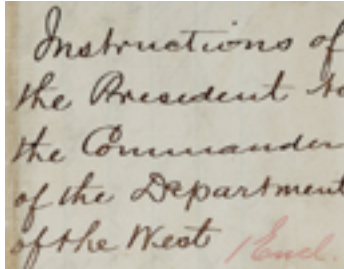 Instructions of
the President to
the Commander
of the Department
of the West 1 Encl.